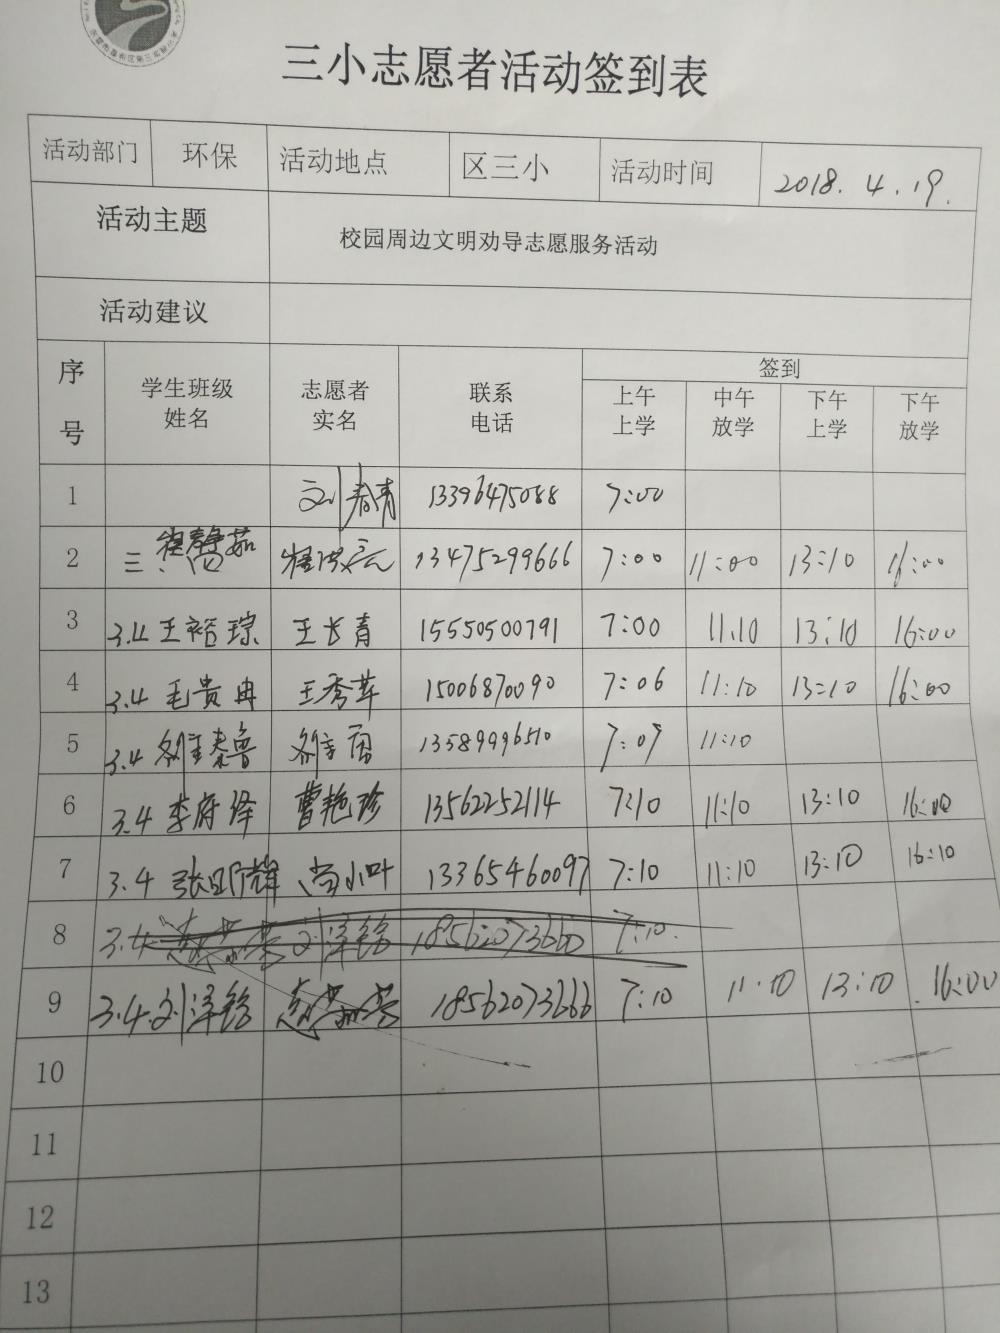 三小志愿者活动签到表
活动部门 环保 活动地点 区三小 活动时间 2018.4.19.
活动主题 校园周边文明劝导志愿服务活动
活动建议
序号 学生班级姓名 志愿者实名 联系电话 签到
上午上学 中午放学 下午上学 下午放学
1 刘春青 13396475088 7:00
2 三、四 13475299666 7:00 11:00 13:10 16:00
3 3.4 王裕琮 王长青 15550500791 7:00 11:10 13:10 16:00
4 3.4 毛贵冉 王秀苹 15006870090 7:06 11:10 13:10 16:00
5 3.4 13589996510 7:07 11:10
6 3.4 李府泽 曹艳珍 13562252114 7:10 11:10 13:10 16:00
7 3.4 尚小叶 13365460097 7:10 11:10 13:10 16:10
8 3.4 刘泽铭 18562073660 7:10.
9 3.4.刘泽铭 18562073666 7:10 11.10 13:10 16:00
10
11
12
13